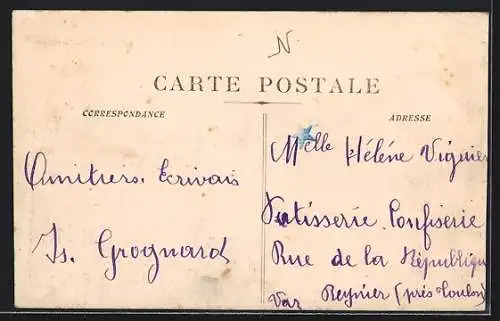 N
CARTE POSTALE
CORRESPONDANCE
ADRESSE
Melle Hélène Vignier
Amitiers. Ecrivais
Js. Grognard
Patisserie. Confiserie
Rue de la République
Reynier (près Toulon)
Var